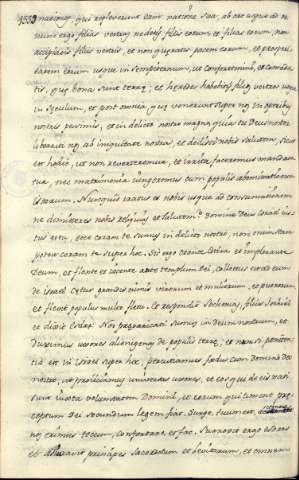 nationis, qui repleverunt eam patetre sua, ab ore usque ad os
nunc ergo filias vestras ne detis filiis eorum et filias eorum, non
accipiatis filiis vestris et non quæratis pacem eorum, et prosperi
tatem eorum usque in sempiternum, ut confortemini, et comeda
tis, quæ bona sunt terræ, et heredes habeatis filios vestros usque
in sæculum, et post omnia, quæ venerunt super nos in operibus
nostris pessimis, et in delicto nostro magno, quia tu Deus noster
liberasti nos ab iniquitate nostra, et dedisti nobis salutem, sicut
est hodie, ut non reverteremur, et irrita faceremus manda
tua, nec matrimonia iungeremus cum populis abominationum
istarum. Nunquid iratus es nobis usque ad consummationem
ne dimitteres nobis reliquias et salutem? Domine Deus Israel ius
tus es tu, ecce coram te sumus in delicto nostro, non enim stari
potest coram te super hoc. Sic ergo orante Esdra et implorante
Deum, et flente et iacente ante templum Dei, collectus est ad eum
de israel cœtus grandis nimis virorum et mulierum, et puerorum
et flevit populus multo fletu. Et respondit Sechenias, filius Iehiel
et dixit Esdræ: Nos prævaricati sumus in Deum nostrum, et
Duximus uxores alienigenas de populis terræ, et nunc si pœniten
tia est in israel super hoc, percutiamus fœdus cum Domino Deo
nostro, ut proiiciamus universas uxores, et eos qui de eis nati
sunt iuxta voluntatem Domini, et eorum qui timent præ
ceptum Dei secundum legem fiat. Surge, tuum est,
nos erimus tecum, confortare, et fac. Surrexit ergo esdras
et adiuravit principes sacerdotum et levitarum, et omnem